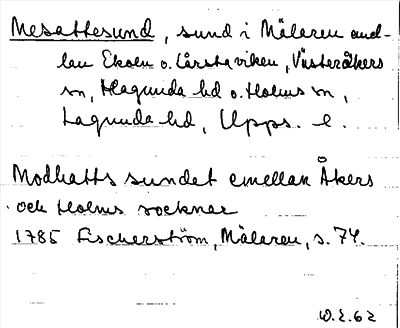 Mesattesund, sund i Mälaren mel-
lan Ekoln o. Lårstaviken, Västeråkers
sn, Hagunda hd o. Holms sn,
Lagunda hd, Upps. l.
Modhatts sundet emellan Åkers
och Holms socknar
1785 Fischerström, Mälaren, s. 74.
W.E.62